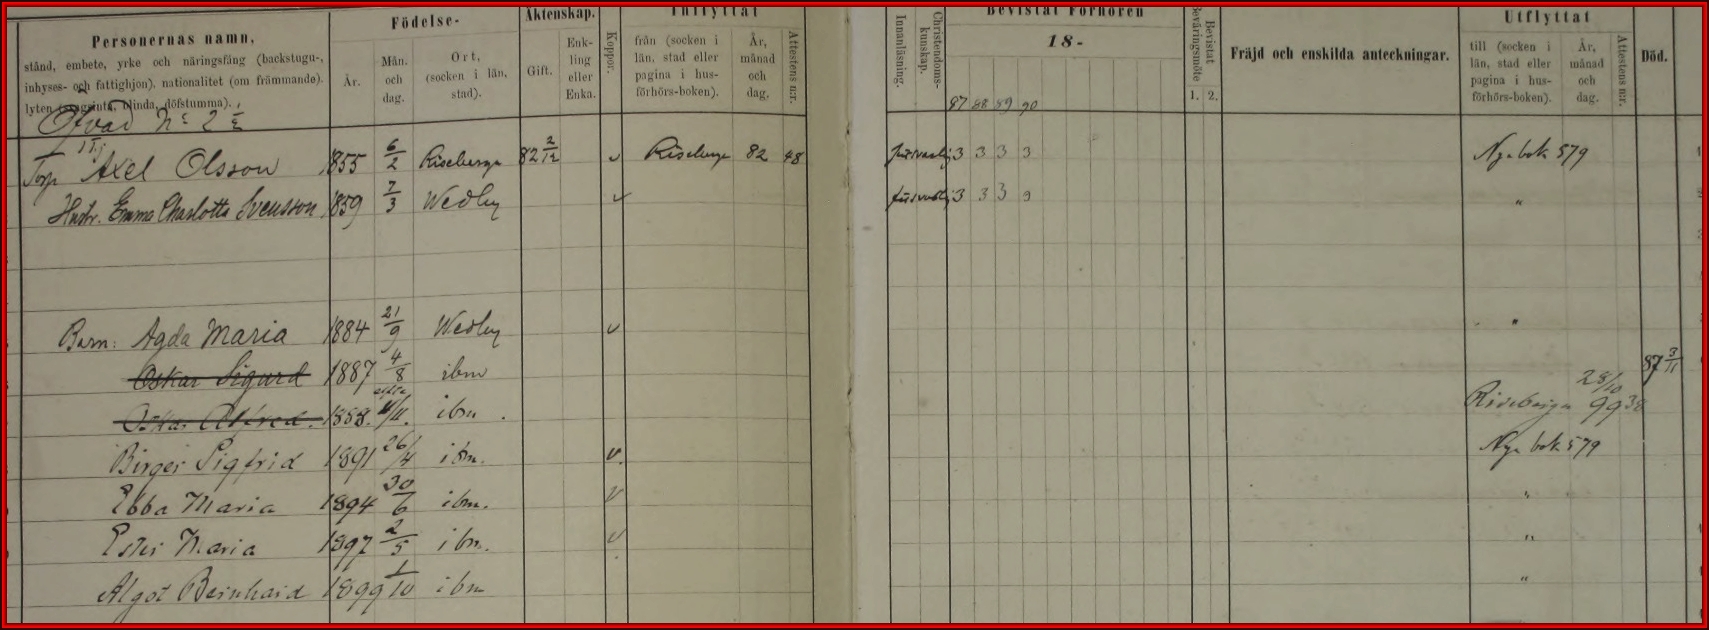 Födelse- Äktenskap. Inflyttat Bevistat Förhören Utflyttat
Personernas namn,
stånd, embete, yrke och näringsfång (backstugu-,
inhyses- och fattighjon), nationalitet (om främmande),
lyten (svagsinta, blinda, döfstumma).
År. Mån. och dag. Ort, (socken i län, stad). Gift. Enk- ling eller Enka. Koppor. från (socken i län, stad eller pagina i hus- förhörs-boken). År, månad och dag. Attestens n:r. Innanläsning. Christendoms- kunskap. 18- Bevistat Beväringsmöte 1. 2. Fräjd och enskilda anteckningar. till (socken i län, stad eller pagina i hus- förhörs-boken). År, månad och dag. Attestens n:r. Död.
87 88 89 90
N:o 2 1/2
Torp Axel Olsson 1855 6/2 Riseberga 82 2/12 Riseberga 82 48 3 3 3 3 Nya bok 579
Hustr. Emma Charlotta Svensson 1859 7/3 Wedby 3 3 3 "
Barn: Agda Maria 1884 21/9 Wedby "
Oskar Sigurd 1887 4/8 ibm 87 3/11
Oskar Alfred. 1888. /11. ibm. Riseberga 28/10 99 38
Birger Sigfrid 1891 26/4 ibm. Nya bok 579
Ebba Maria 1894 30/6 ibm. "
Ester Maria 1897 2/5 ibm. "
Algot Bernhard 1899 1/10 ibm "